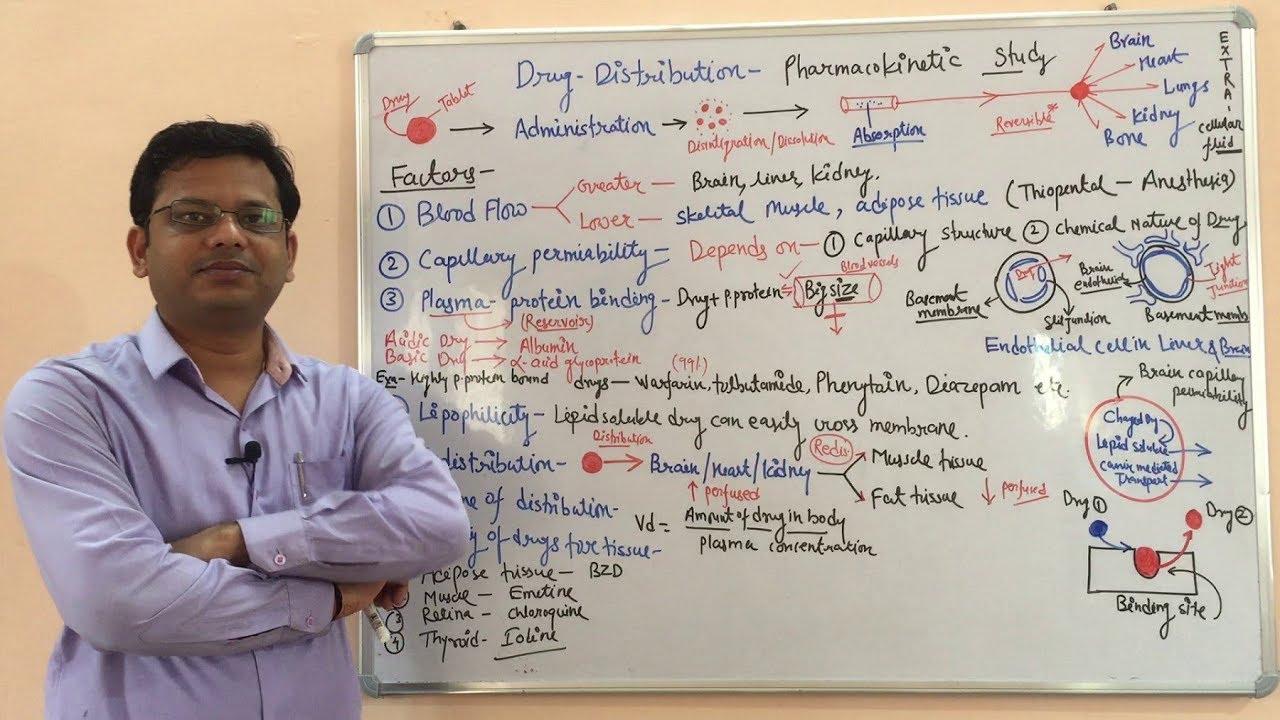 Drug-Distribution- Pharmacokinetic Study
Drug Tablet
Administration
Disintigration/Dissolution
Absorption
Reversible*
Brain
Heart
Lungs
Kidney
Bone
EXTRA-
cellular
fluid
Factors-
① Blood Flow
Greater — Brain, liver, kidney.
Lower — Skelital Muscle, adipose tissue (Thiopental - Anesthesia)
② Capillary permiability = Depends on- ① Capillary structure ② Chemical Nature of Drug
③ Plasma-protein binding - Drug + P.protein = Big size
Blood vessels
(Reservoir)
Drug
Basement
membrane
Slit junction
Brain
endothelial
Tight
Junction
Basement memb
Endothelial cell in Liver & Brain
Acidic Drug → Albumin
Basic Drug → α-acid glycoprotein (99%)
Exa- Highly p-protein bound drugs - Warfarin, tolbutamide, Phenytoin, Diazepam etc.
Lipophilicity - Lipid soluble drug can easily cross membrane.
Brain capillary
permiability
Charged
Lepid soluble
Carrier mediated
Transport
distribution-
Distribution
Brain/Heart/Kidney
↑ perfused
Redis.
Muscle tissue
Fat tissue
↓ perfused
me of distribution-
Vd = Amount of drug in body
plasma concentration
y of drugs for tissue-
Adipose tissue - BZD
Muscle - Emetine
③ Retina - chloroquine
④ Thyroid - Iodine
Drug ①
Drug ②
Binding site